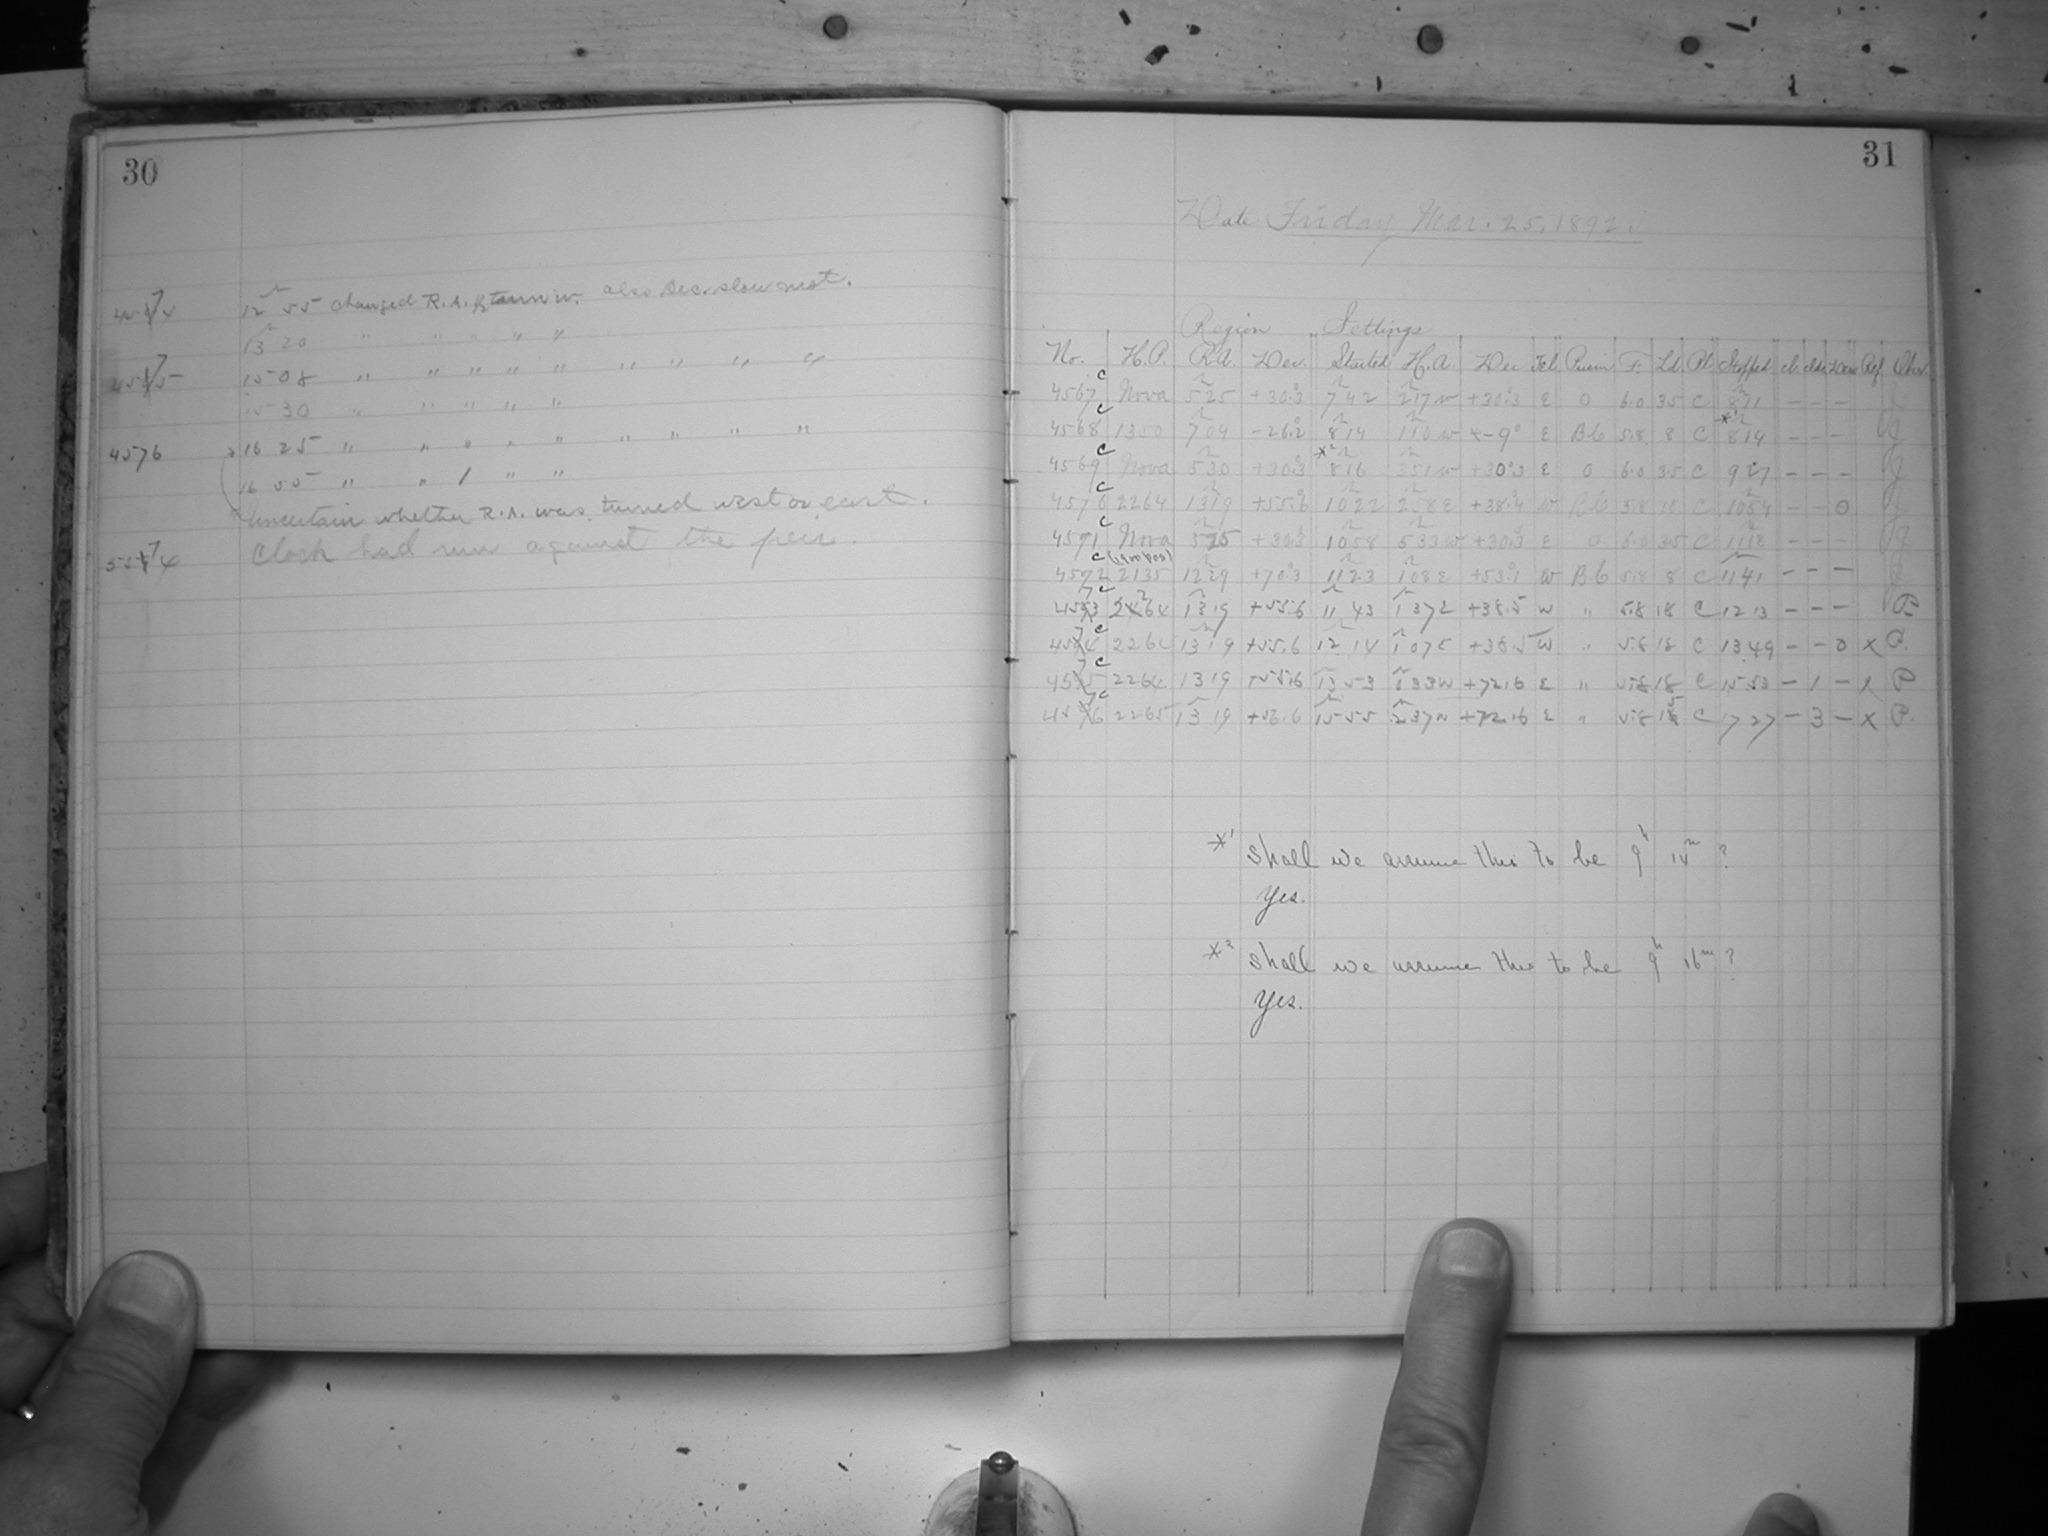 30
4574 12 55 changed R.A. turn w. also Dec. slow mot.
13 20 " " " " "
4575 15 08 " " " " " " " " "
15 30 " " " " "
4576 16 25 " " " " " " " " "
16 55 " " " "
Uncertain whether R.A. was turned west or east.
Clock had run against the
31
Date Friday Mar. 25, 1892.
Region Settings
No. H.P. R.A. Dec. Started H.A. Dec Tel Prism F. Ld Pl Stopped cl. Ref. Obsr.
4567 c Nova 525 +30.3 742 217 w +30.3 E 0 6.0 35 C - - -
4568 c 1350 704 -26.2 814 110 w -9° E B6 5.8 8 C *1 814 - - - J
4569 c Nova 530 +30.3 *2 816 351 w +30.3 E 0 6.0 35 C 927 - - - J
4570 c 2264 1319 +55.6 1022 258 E +38.4 w B6 5.8 18 C 1054 - - 0 J
4571 c Nova 525 +30.3 1058 533 w +30.3 E 0 6.0 35 C 1118 - - - J
4572 c 2135 1229 +70.3 1123 108 E +53.1 w B6 5.8 8 C 1141 - - - J
4573 c 2264 1319 +55.6 11 43 1 37 E +38.5 w " 5.8 18 C 12 13 - - - P
4574 c 2264 1319 +55.6 12 14 1 07 E +38.5 w " 5.8 18 C 1349 - - 0 x P.
4575 c 2264 1319 +55.6 13 53 0 33 w +72.6 E " 5.8 18 C 15 53 - 1 - x P
4576 c 2265 1319 +56.6 15 55 2 37 w +72.6 E " 5.8 C 17 27 - 3 - x P.
*1 Shall we assume this to be 9h 14m ?
Yes.
*2 Shall we assume this to be 9h 16m ?
Yes.